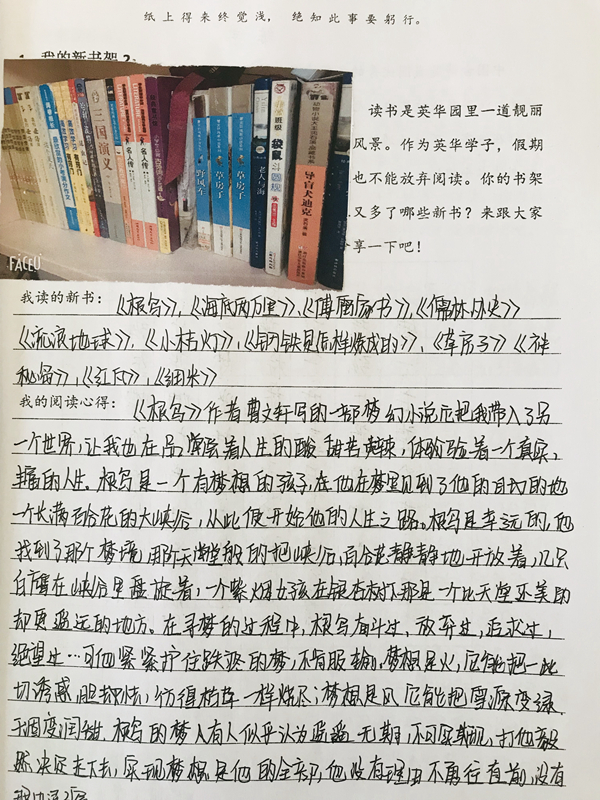 纸上得来终觉浅，绝知此事要躬行。
我的新书架2:
三国演义
名人传
名人传
野风车
草房子
草房子
老人与海
袋鼠
导盲犬迪克
FACEU
读书是英华园里一道靓丽
风景。作为英华学子，假期
也不能放弃阅读。你的书架
又多了哪些新书？来跟大家
享一下吧！
我读的新书：《根鸟》，《海底两万里》，《傅雷家书》，《儒林外史》
《流浪地球》，《小桔灯》，《钢铁是怎样炼成的》，《草房子》《神
秘岛》，《红岩》，《细米》
我的阅读心得：《根鸟》作者曹文轩写的一部梦幻小说它把我带入了另
一个世界，让我也在品尝着人生的酸甜苦辣，体验着一个真实，
丰富的人生。根鸟是一个有梦想的孩子，在他在梦里见到了他的目的地
一个长满百合花的大峡谷，从此便开始他的人生之路。根鸟是幸运的，他
找到了那个梦境，用天堂般的把峡谷，百合花静静地开放着，几只
白鹰在峡谷里盘旋着，一个紫烟女孩在银杏树下那是一个比天堂还美的
却更遥远的地方。在寻梦的过程中，根鸟奋斗过，放弃过，追求过，
绝望过…可他紧紧护住跌跌的梦，不肯服输。梦想是火，它能把一些
切诱惑，胆却怯，彷徨枯草一样烧尽；梦想是风它能把雪源变绿
干涸变润甜。根鸟的梦人有人似乎认为遥遥无期，不可实现，打他毅
然决定走下去，实现梦想是他的全部，他没有理由不勇往直前，没有